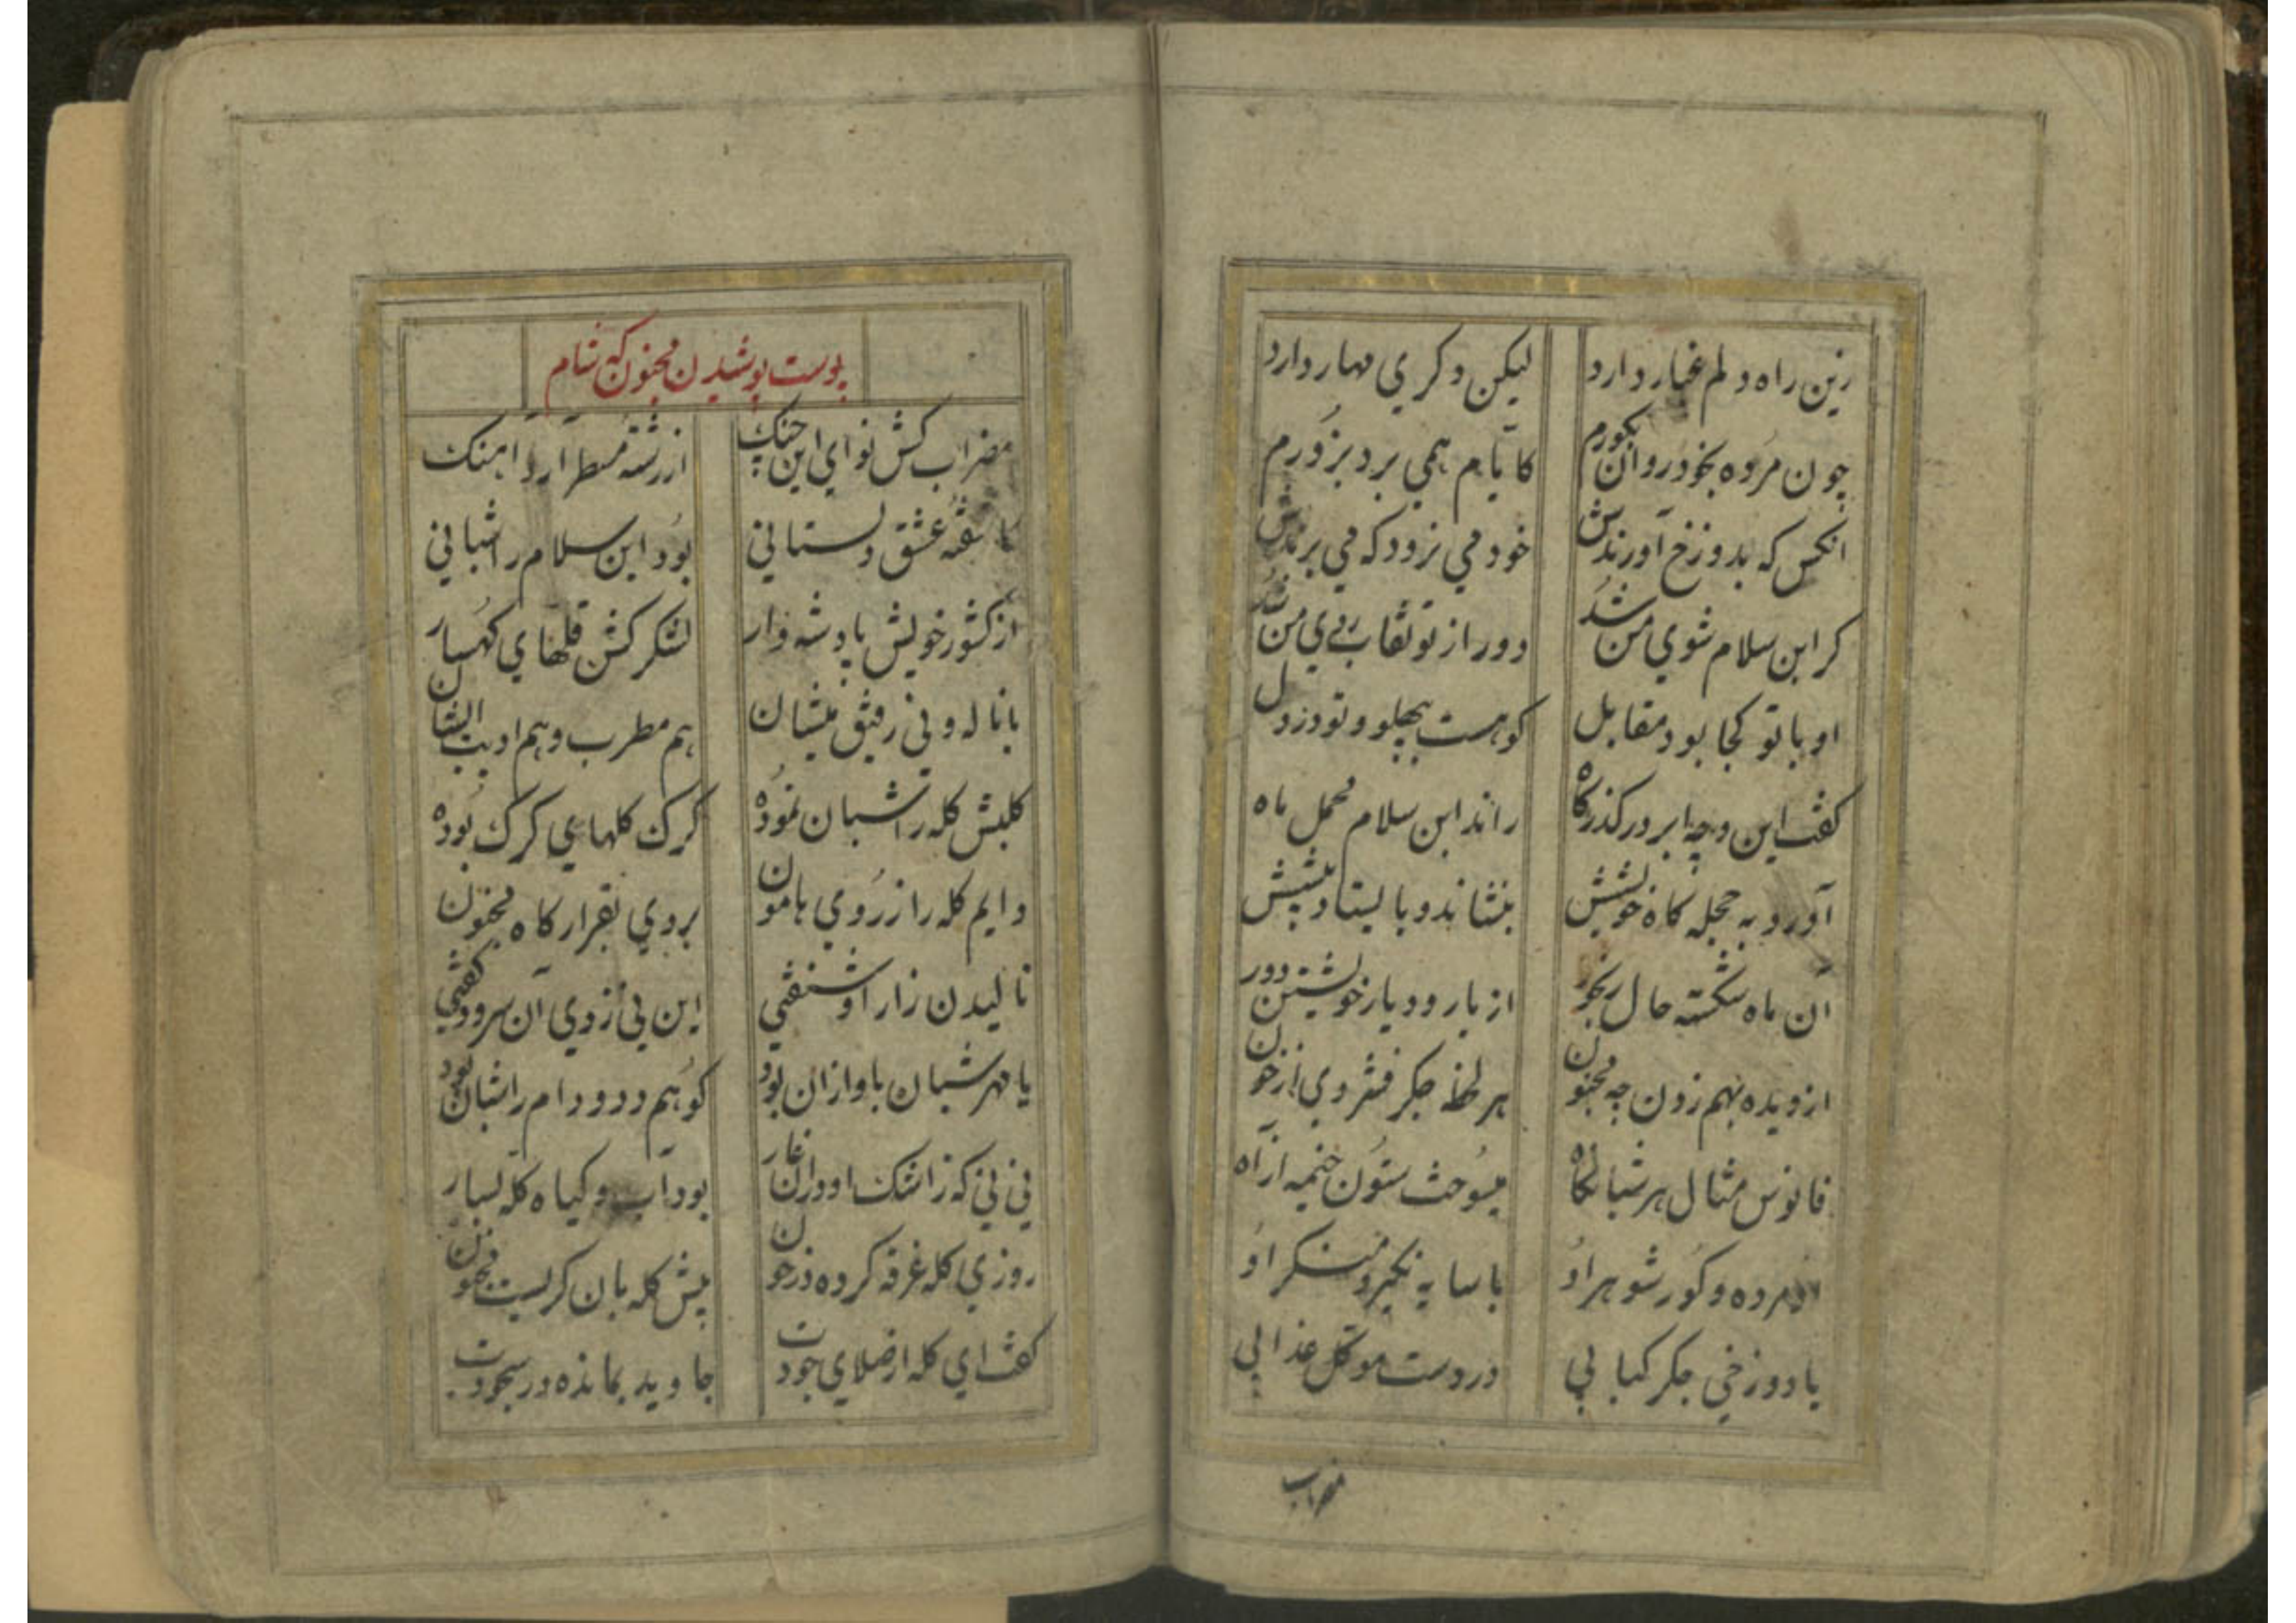 زین راه دلم غبار دارد لیکن دکری مهار دارد
چون مرده بخود روان بکورم کایام همی برد بزورم
انکس که بدوزخ آورندش خود می نرود که می برندش
کر ابن سلام شوی من شد دور از تو نقاب روی من شد
او با تو کجا بود مقابل کو هست بپهلو و تو در دل
کفت این و چو ابر در کذرکاه راند ابن سلام محمل ماه
آورد به حجله کاه خویشش بنشاند و بایستاد پیشش
آن ماه شکسته حال رنجور از یار و دیار خویشتن دور
از دیده بهم زدن چه مجنون هر لحظه جکر فشردی از خون
فانوس مثال هر شبانکاه میسوخت ستون خیمه از آه
او مرده و کور شوهر او با سایه نکیر و منکر او
یا دوزخی جکر کبابی در دست موکل عذابی
مضراب
پوست پوشیدن مجنون که شام
مضراب کش نوای این چنک از رشته مسطر آرد آهنک
کاشفته عشق دلستانی بود ابن سلام را شبانی
از کشور خویش پادشه وار لشکر کش قلهای کهسار
با ناله و نی رفیق میشان هم مطرب و هم ادیب ایشان
کلبش کله را شبان نموده کرک کلهای کرک بوده
دایم کله را ز روی هامون بردی بقرارکاه مجنون
نالیدن زار او شنفتی این نی زدی آن سرود کفتی
یا مهر شبان باو ازان بود کو هم دد و دام را شبان بود
نی نی که ز اشک او دران غار بود آب و کیاه کله بسیار
روزی کله غرقه کرده در خون پیش کله بان کریست مجنون
کفت ای کله از صلای جودت جاوید بمانده در سجودت